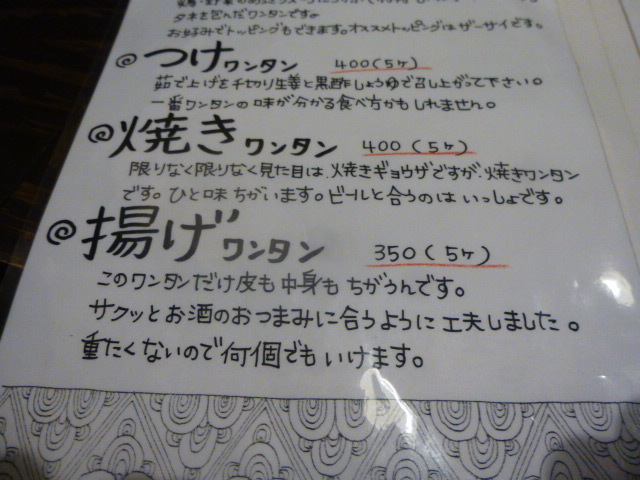 タネを包んだワンタンです。
お好みでトッピングもできます。オススメトッピングはザーサイです。
つけワンタン 400(5ヶ)
茹で上げを千切り生姜と黒酢しょうゆで召し上がって下さい。
一番ワンタンの味が分かる食べ方かもしれません。
焼きワンタン 400(5ヶ)
限りなく限りなく見た目は、焼きギョウザですが、焼きワンタン
です。ひと味ちがいます。ビールと合うのはいっしょです。
揚げワンタン 350(5ヶ)
このワンタンだけ皮も中身もちがうんです。
サクッとお酒のおつまみに合うように工夫しました。
重たくないので何個でもいけます。